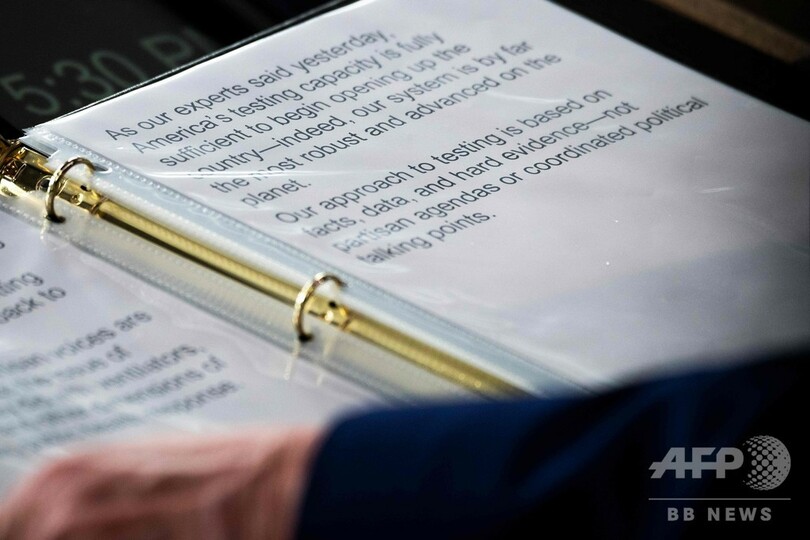 5:30
As our experts said yesterday,
America's testing capacity is fully
sufficient to begin opening up the
country—indeed, our system is by far
the most robust and advanced on the
planet.
Our approach to testing is based on
facts, data, and hard evidence—not
partisan agendas or coordinated political
talking points.
back to
voices are
ventilators,
AFP
BB NEWS